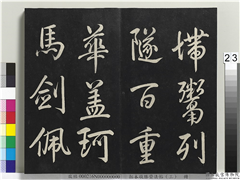 墆鬻列
隧百重
華蓋珂
馬劍佩
23